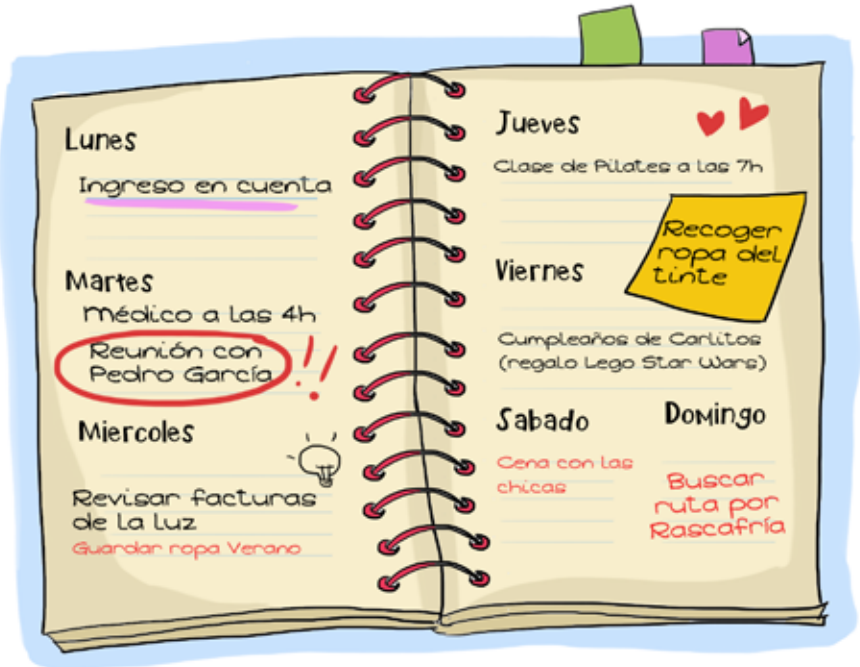 Lunes
Ingreso en cuenta
Martes
médico a las 4h
Reunión con
Pedro García
!!
Miercoles
Revisar facturas
de la luz
Guardar ropa Verano
Jueves
Clase de Pilates a las 7h
Recoger
ropa del
tinte
Viernes
Cumpleaños de Carlitos
(regalo Lego Star Wars)
Sabado
Cena con las
chicas
Domingo
Buscar
ruta por
Rascafría